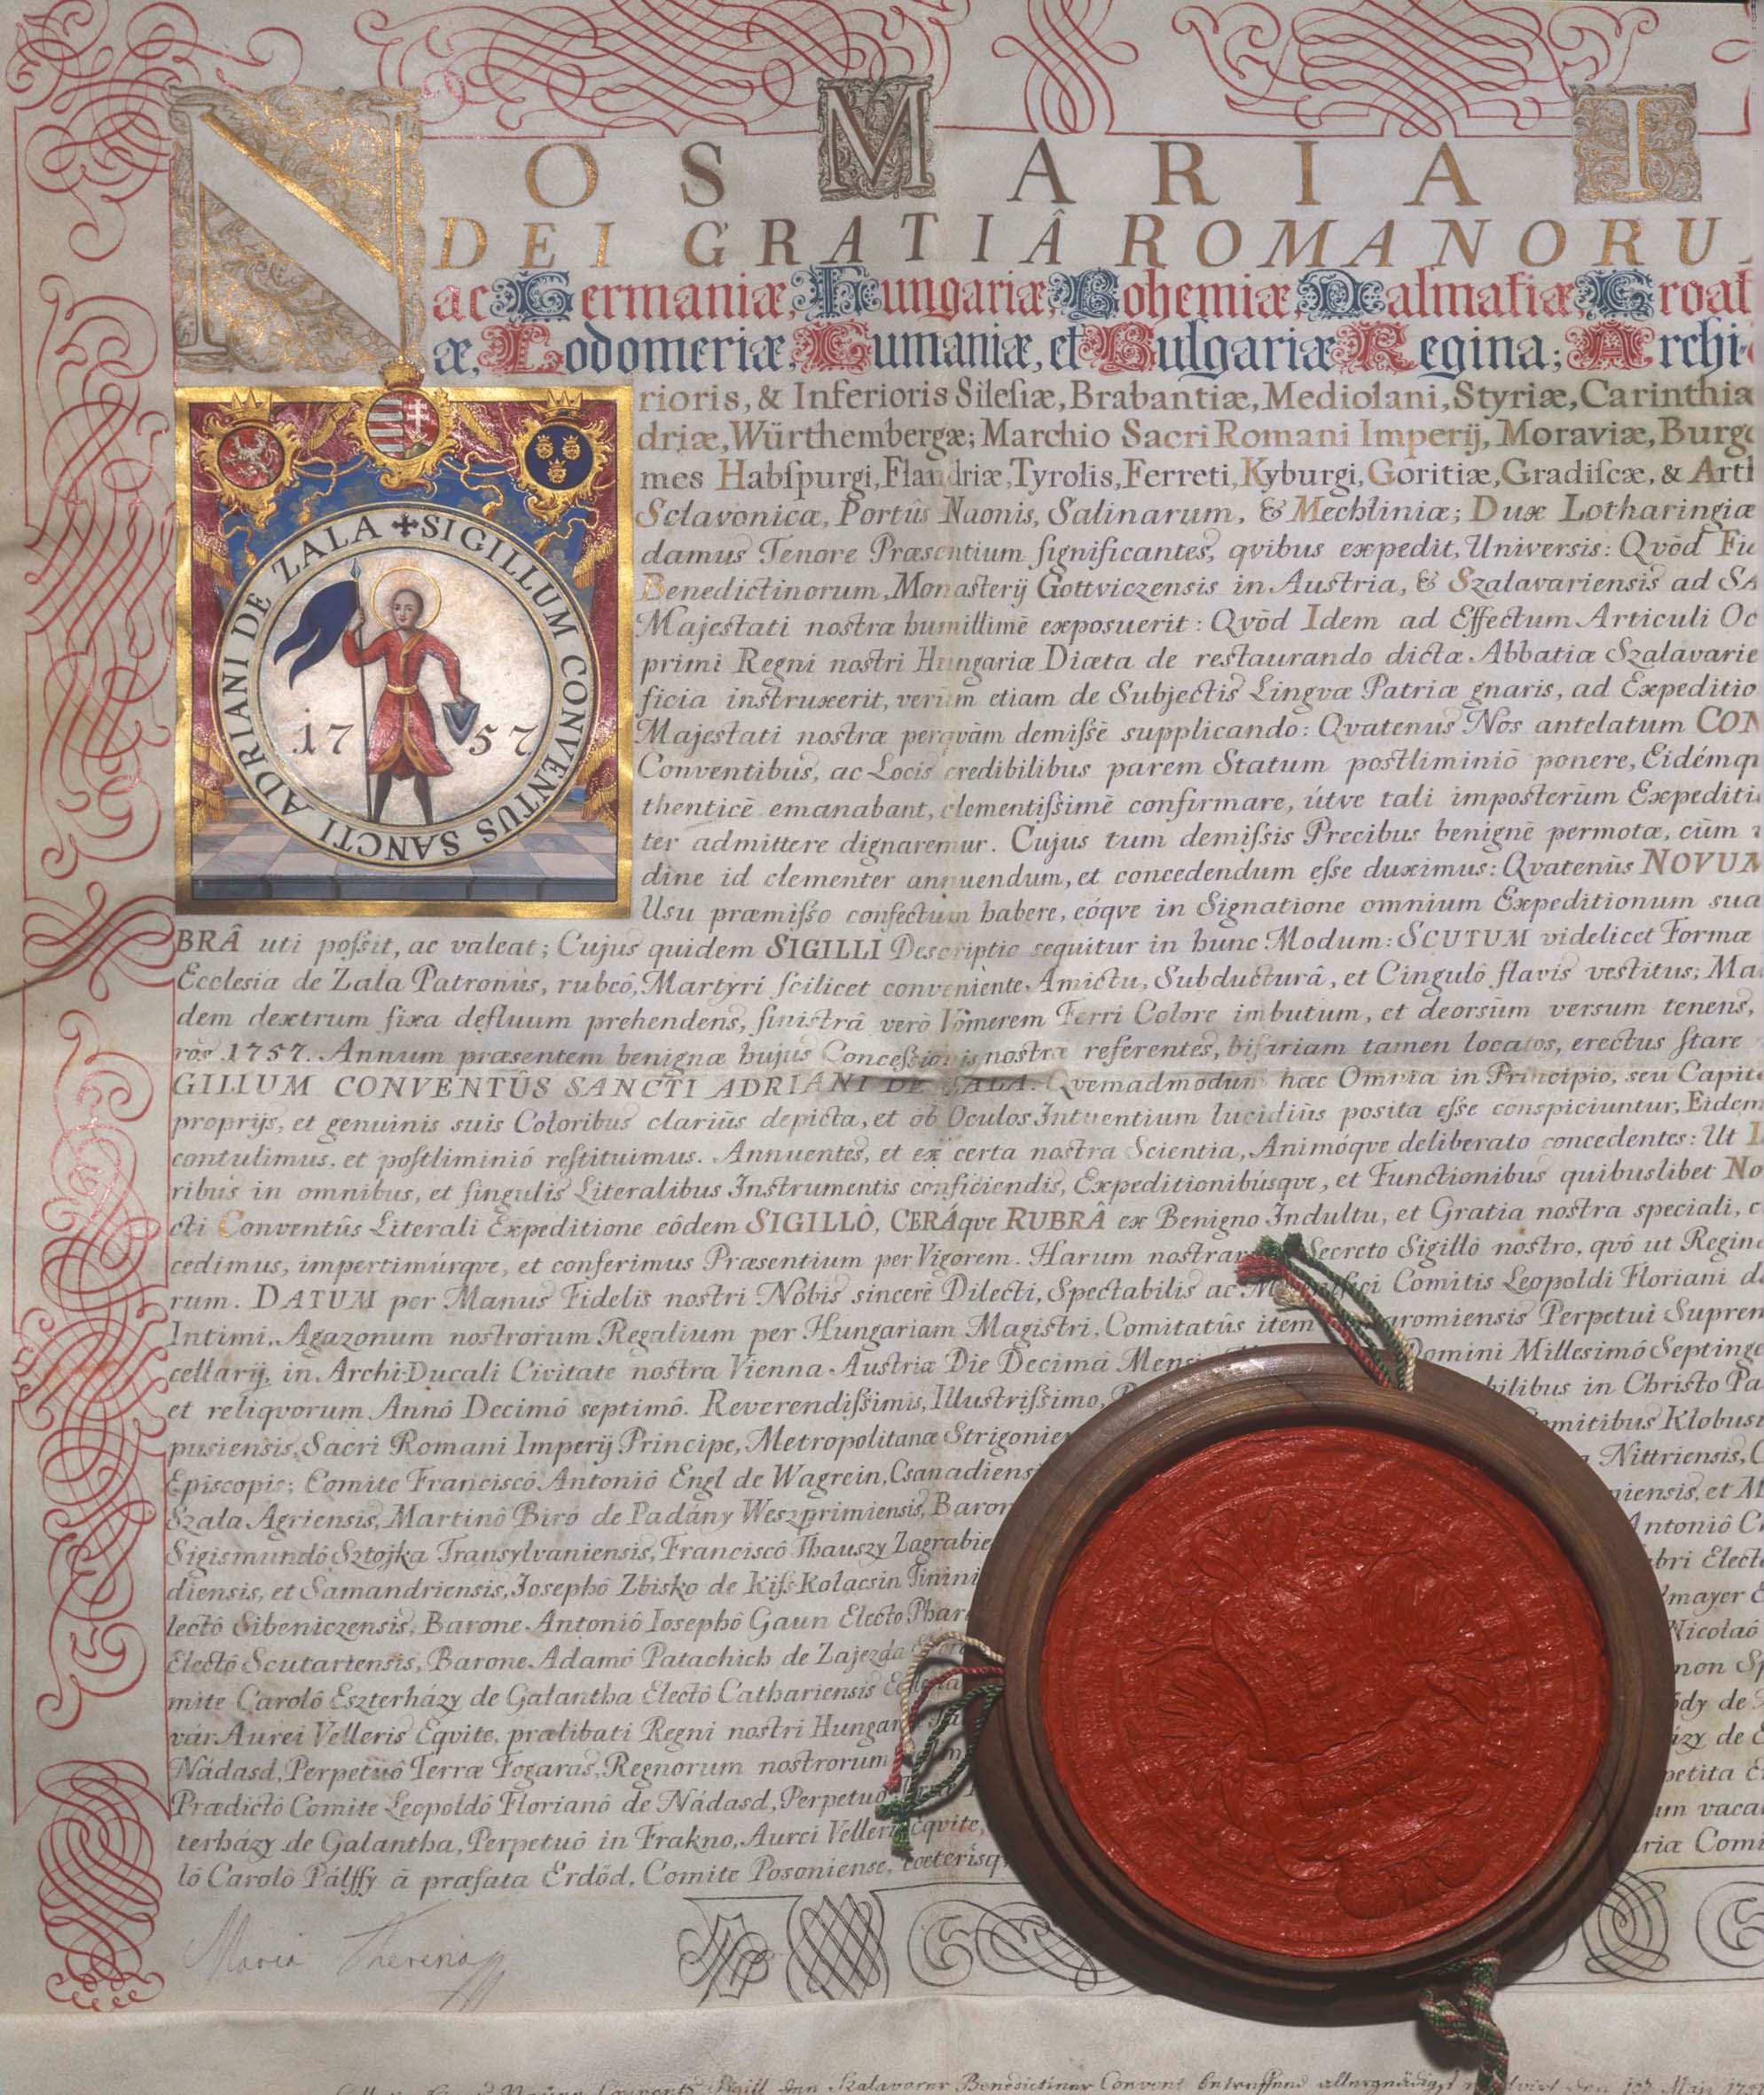 NOS MARIA T
DEI GRATIÂ ROMANORU
ac Germaniæ, Hungariæ, Bohemiæ, Dalmatiæ, Croat
æ, Lodomeriæ, Cumaniæ, et Bulgariæ Regina; Archi-
rioris, & Inferioris Sileſiæ, Brabantiæ, Mediolani, Styriæ, Carinthia
driæ, Würthembergæ; Marchio Sacri Romani Imperij, Moraviæ, Burg
mes Habſpurgi, Flandriæ, Tyrolis, Ferreti, Kyburgi, Goritiæ, Gradiſcæ, & Art
Sclavonicæ, Portûs Naonis, Salinarum, & Mechliniæ; Dux Lotharingiæ
damus Tenore Præsentium ſignificantes, qvibus expedit, Universis: Qvōd Fi
Benedictinorum, Monasterij Gottviczensis in Austria, & Szalavariensis ad SA
Majestati nostræ humillimē exposuerit: Qvōd Idem ad Effectum Articuli Oc
primi Regni nostri Hungariæ Diæta de restaurando dictæ Abbatiæ Szalavarie
ficia instruxerit, verùm etiam de Subjectis Lingvæ Patriæ gnaris, ad Expeditio
Majestati nostræ perqvàm demiſsē supplicando: Qvatenus Nos antelatum CON
Conventibus, ac Locis credibilibus parem Statum postliminiō ponere, Eidémq
thenticē emanabant, clementiſsimē confirmare, útve tali imposterūm Expediti
ter admittere dignaremur. Cujus tum demiſsis Precibus benignē permotæ, cūm
dine id clementer annuendum, et concedendum eſse duximus: Qvatenūs NOVUM
Usu præmiſso confectum habere, eóqve in Signatione omnium Expeditionum sua
BRÂ uti poſsit, ac valeat; Cujus quidem SIGILLI Descriptio sequitur in hunc Modum: SCUTUM videlicet Formæ
Ecclesiæ de Zala Patronus, rubeô, Martyri ſcilicet conveniente Amictu, Subducturâ, et Cingulô flavis vestitus; Ma
dem dextrum fixa defluum prehendens, ſinistrâ verò Vomerem Ferri Colore imbutum, et deorsūm versum tenens,
ros 1757. Annum præsentem benignæ hujus Conceſsionis nostræ referentes, bifariam tamen locatos, erectus ſtare
GILLUM CONVENTÛS SANCTI ADRIANI DE ZALA. Qvemadmodum hæc Omnia in Principio, seu Capit
proprijs, et genuinis suis Coloribus clariūs depicta, et ob Oculos Intuentium lucidiūs posita eſse conspiciuntur, Eidem
contulimus, et poſtliminiô reſtituimus. Annuentes, et ex certa nostra Scientia, Animóqve deliberato concedentes: Ut
ribus in omnibus, et ſingulis Literalibus Instrumentis conficiendis, Expeditionibúsqve, et Functionibus quibuslibet No
cti Conventûs Literali Expeditione eôdem SIGILLÔ, CERÁqve RUBRÂ ex Benigno Indultu, et Gratia nostra speciali,
cedimus, impertimúrqve, et conferimus Præsentium per Vigorem. Harum nostrar Secreto Sigillô nostro, qvô ut Regin
rum. DATUM per Manus Fidelis nostri Nobis sincerē Dilecti, Spectabilis ac M Comitis Leopoldi Floriani d
Intimi, Agazonum nostrorum Regalium per Hungariam Magistri, Comitatûs item aromiensis Perpetui Suprem
cellarij, in Archi-Ducali Civitate nostra Vienna Austriæ Die Decimâ Mens Domini Millesimô Septinge
et reliqvorum Annô Decimô septimô. Reverendiſsimis, Illustriſsimo, bilibus in Christo Pa
pusiensis, Sacri Romani Imperij Principe, Metropolitanæ Strigonie omitibus Klobus
Episcopis; Comite Franciscô Antoniô Engl de Wagrein, Csanadiens Nittriensis,
Szala Agriensis, Martinô Biró de Padány Weszprimiensis, Baron niensis, et
Sigismundô Sztojka Transylvaniensis, Franciscô Thauszy Zagrabie Antoniô
diensis, et Samandriensis, Iosephô Zbisko de Kiſs-Kolacsin Tinini bri Elect
lectô Sibeniczensis, Barone Antoniô Iosephô Gaun Electo Phar mayer
Electô Scutartensis, Barone Adamô Patachich de Zajezda Nicolaô
mite Carolô Eszterházy de Galantha Electô Cathariensis non Sp
vár Aurei Velleris Eqvite, prælibati Regni nostri Hungar ódy de
Nádasd, Perpetuô Terræ Fogaras, Regnorum nostrorum ázy de
Prædictô Comite Leopoldô Florianô de Nádasd, Perpetuô Terræ petita
terházy de Galantha, Perpetuô in Frakno, Aurei Velleris Eqvite, um vaca
lô Carolô Pálffy â præfata Erdőd, Comite Posoniense, cœterisq riæ Comi
SIGILLUM CONVENTUS SANCTI ADRIANI DE ZALA
1757
Maria Theresia
Sigill Szalavarer Benedictiner Convent betreffend allergnädigst